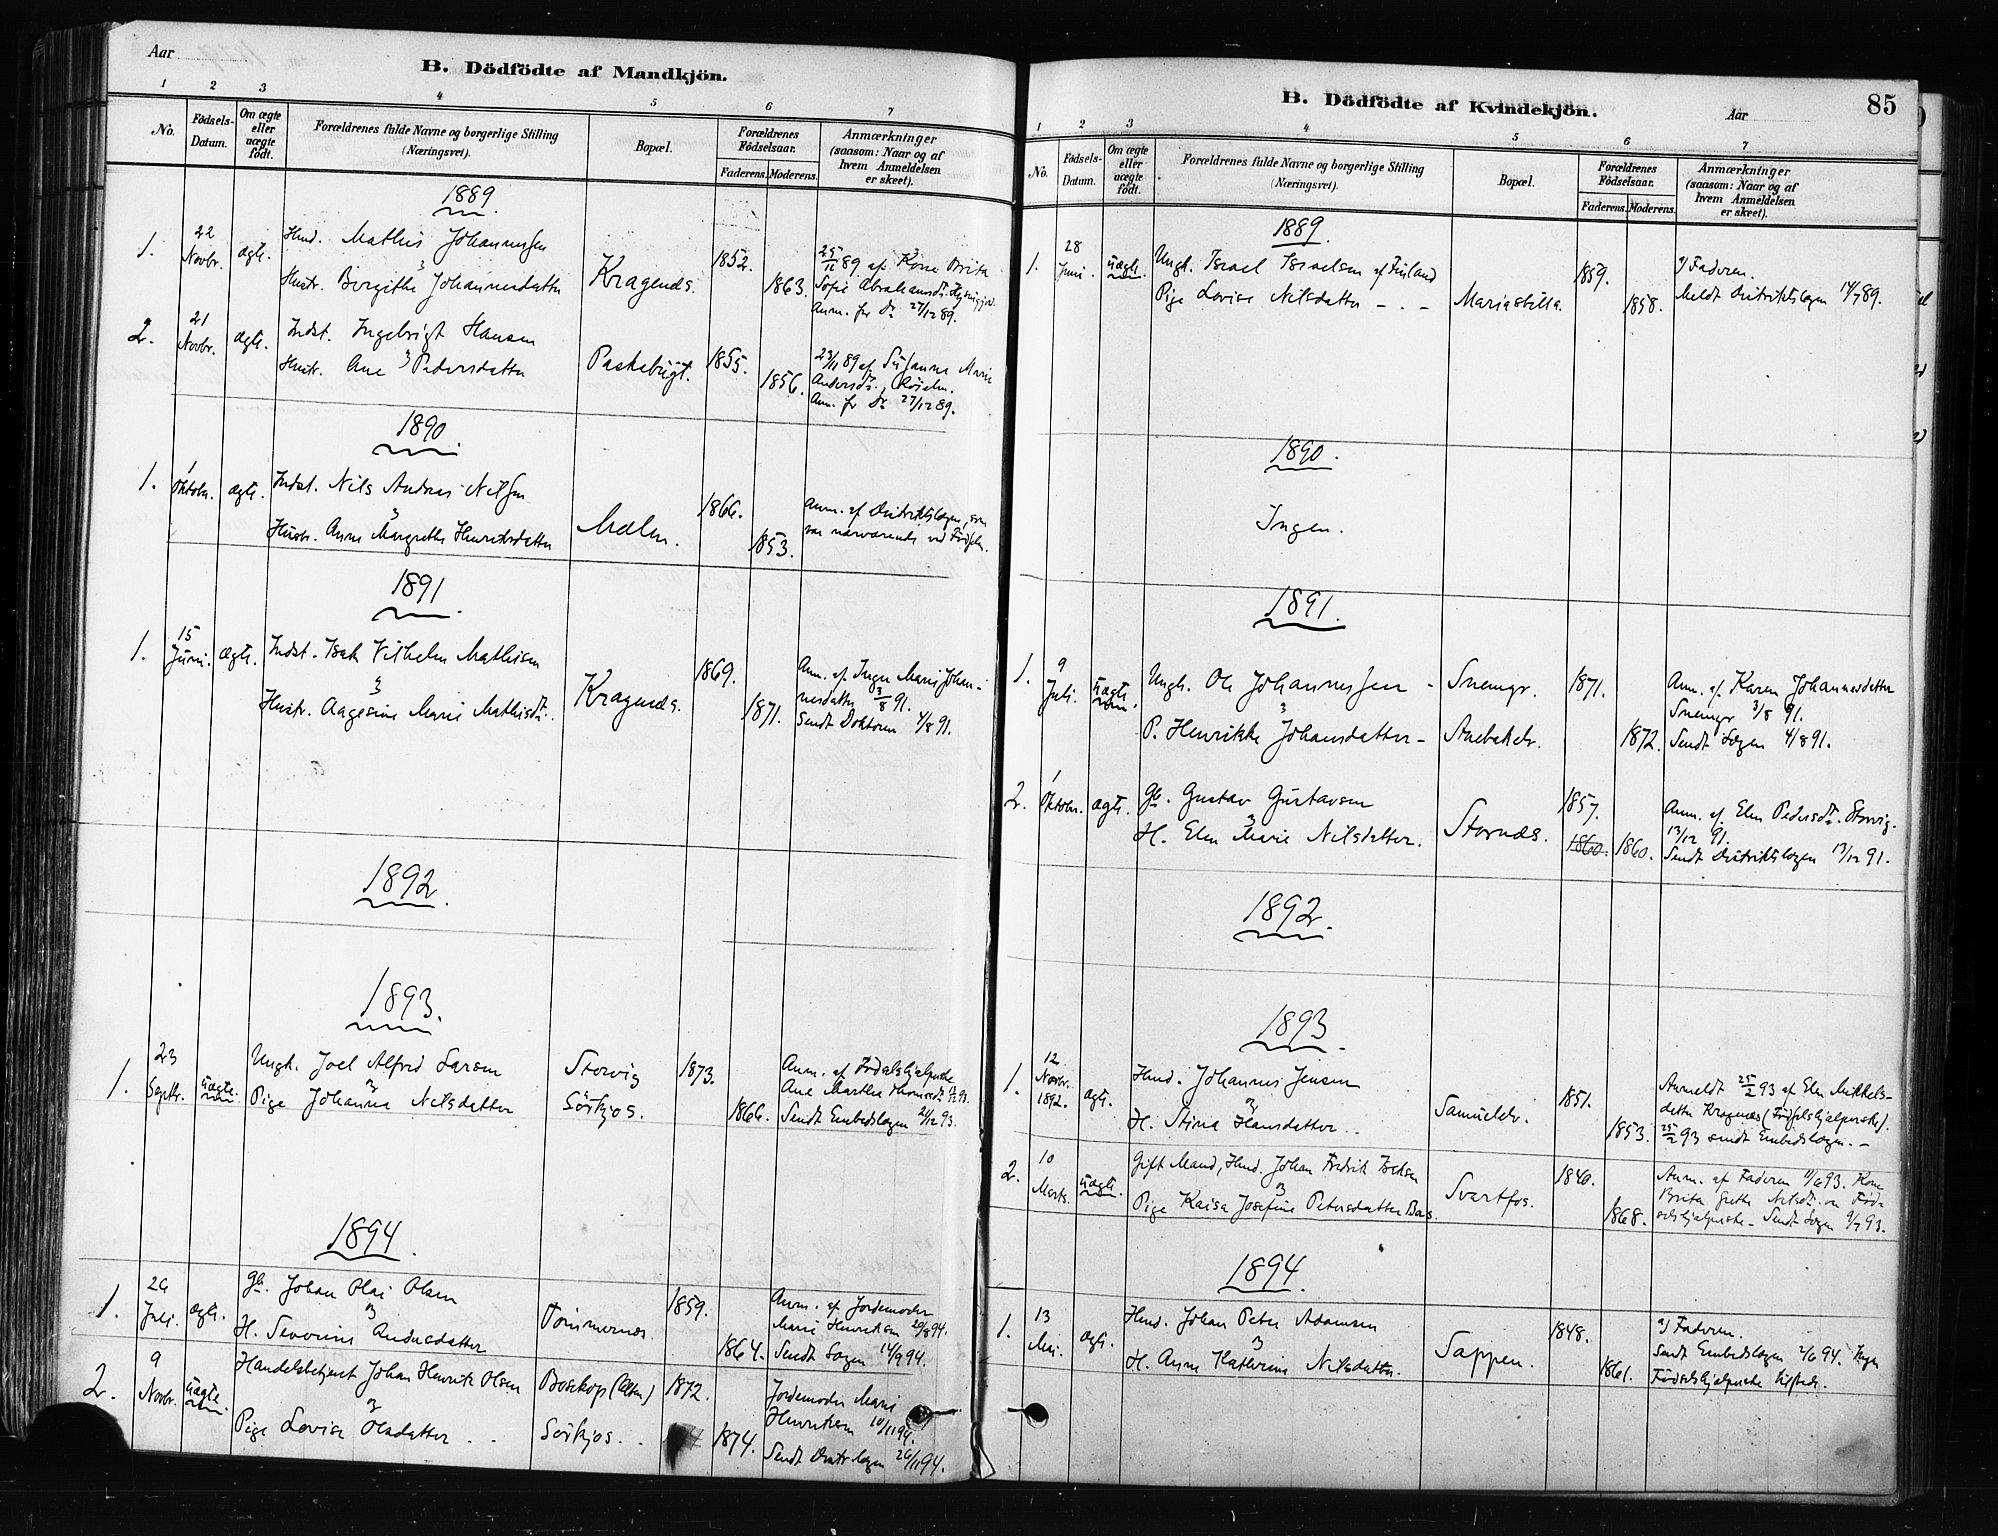 Aar
B. Dödfödte af Mandkjön.
1 2 3 4 5 6 7
No.
Födsels-Datum.
Om ægte eller uægte födt.
Forældrenes fulde Navne og borgerlige Stilling
(Næringsvei).
Bopæl.
Forældrenes Födselsaar.
Faderens. Moderens.
Anmærkninger
(saasom: Naar og af
hvem Anmeldelsen
er skeet).
1889
1. 22 Novbr. ægte. Huusm. Mathis Johannessen
Hustr. Borgithe Johannesdatter Kragenæs. 1852. 1863.
25/11 89 af Kone Brita
Sofie Abrahamsdr.
Anm. fr Dr 27/12 89.
2. 21 Novbr. ægte. Indst. Ingebrigt Hansen
Hustr. Ane Pedersdatter Paskebugt. 1855. 1856.
23/11 89 af Susanna Marie
Andersdr., Röielen.
Anm. fr Dr 27/12 89.
1890
1. 1 Oktobr. ægte. Indst. Nils Andreas Nilsen
Hustr. Anna Margrethe Henriksdatter Malen. 1866. 1853.
Anm. af Distriktslægen, som
var nærværende ved Födsln.
1891
1. 15 Juni. ægte. Indst. Isak Vilhelm Mathisen
&
Hustr. Aagesine Marie Mathisdr. Kragenæs. 1869. 1871.
Anm. af Inger Marie Johan-
nesdatter 3/8 91.
Sendt Doktoren 4/8 91.
1892
1893.
1. 23 Septbr. uægte. Ungk. Joel Alfred Larsen Storvig 1873.
&
Pige Johanna Nilsdatter Sörkjos. 1866.
Anm. af Födselshjælperske
Ane Marthea Thomasdr.
Sendt Embedslægen 21/12 93.
1894
1. 26 Juli. ægte. Gb. Johan Olai Olsen
&
H. Severine Andreasdatter Tömmernæs. 1859. 1864.
Anm. af Jordemoder
Marie Henriksen 20/8 94.
Sendt Lægen 14/9 94.
2. 9 Novbr. uægte. Handelsbetjent Johan Henrik Olsen Bosekop (Alten) 1872.
&
Pige Lovise Olsdatter Sörkjos. 1874.
Jordemoder Marie
Henriksen 10/11 94.
Sendt Distr.lægen 26/11 94.
B. Dödfödte af Kvindekjön.
Aar
85
1 2 3 4 5 6 7
No.
Födsels-Datum.
Om ægte eller uægte födt.
Forældrenes fulde Navne og borgerlige Stilling
(Næringsvei).
Bopæl.
Forældrenes Födselsaar.
Faderens. Moderens.
Anmærkninger
(saasom: Naar og af
hvem Anmeldelsen
er skeet).
1889.
1. 28 Juni. uægte. Ungk. Israel Israelsen af Finland 1859.
Pige Lovise Nilsdatter Mariastilla. 1858.
af Faderen.
Meldt Distriktslægen 14/7 89.
1890.
Ingen.
1891.
1. 9 Juli. uægte. Ungk. Ole Johannessen - Snemyr. 1871.
&
P. Henrikke Johansdatter - 1872.
Anm. af Karen Johannesdatter
Snemyr 3/8 91.
Sendt Lægen 4/8 91.
2. 1 Oktobr. ægte. Gb. Gustav Gustavsen
&
H. Elen Marie Nilsdatter. Stornæs. 1857. 1860. 1860.
Anm. af Elen Pedersdr. Storvig.
13/12 91.
Sendt Distriktslægen 13/12 91.
1892.
1893
1. 12 Novbr. 1892. ægte. Huusm. Johannes Jensen
&
H. Stina Hansdatter Samuelelv. 1851. 1853.
Anmeldt 25/2 93 af Elen Mikkels-
datter Kragnæs (Födselshjælperske).
25/2 93 sendt Embedslægen.
2. 10 Marts. uægte. Gift Mand, Huusm. Johan Fredrik Isaksen
&
Pige Kaisa Josefine Petersdatter Bas. Svartfos. 1840. 1868.
Anm. af Faderen 11/6 93. Kone
Brita Grethe Nilsdr. var Föd-
selshjælperske. Sendt Lægen 9/7 93.
1894
1. 13 Mai. ægte. Huusm. Johan Peter Adamsen
&
H. Anna Kathrine Nilsdatter. Sappen. 1848. 1861.
af Faderen.
Sendt Embedslægen 2/6 94. Ingen
Födselshjælperske tilstede.